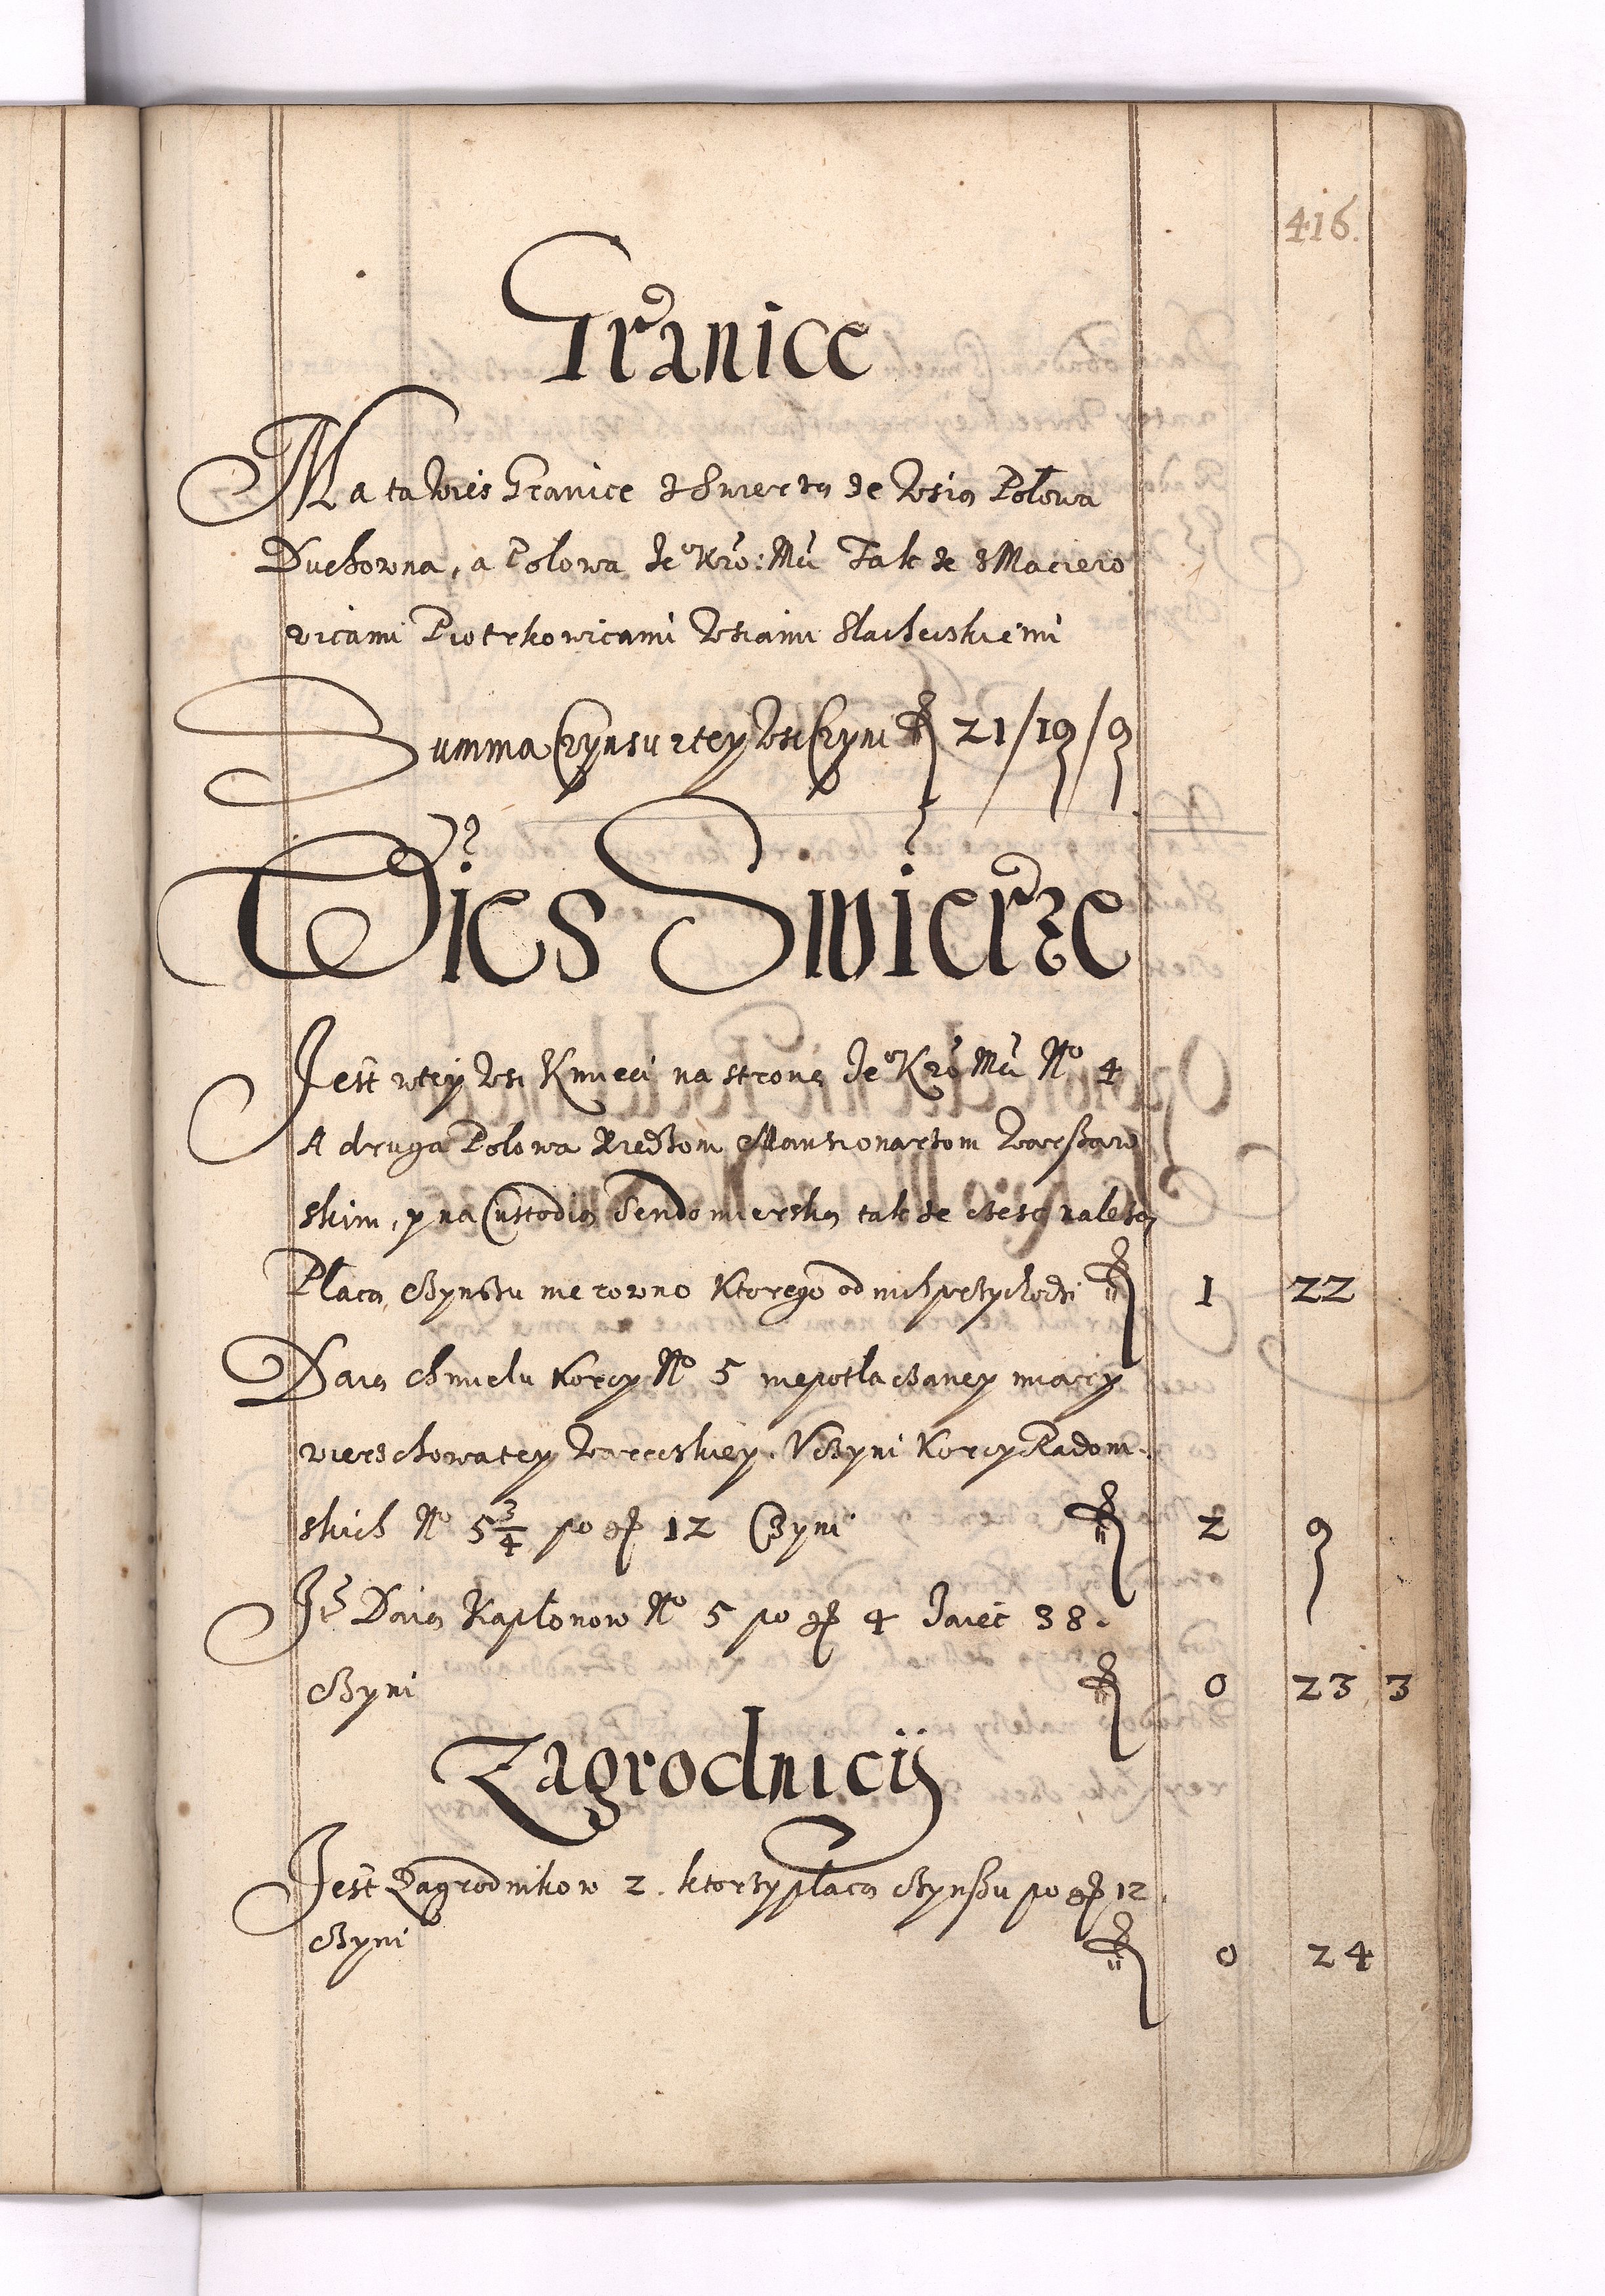 416.
Granice
Ma ta Wies Granice z Swierzą ze Wsią Połowa
Duchowna, a Polowa Je° Kro: Mći Takze z Macieio
wicami Piotrkowicami Wsiami Slacheckiemi
Summa Czynsu z tey Wsi Czyni 21/19/9
Wieś Swierze
Jest w tey Wsi Kmieci na stronę Je° Kró Mći N° 4
A druga Polowa Xiedzom Mansionarzom Warszaw
skim, y na Custodią Sendomierską takze czesc nalezy
Płacą czynszu nie rowno Ktorego od nich przychodzi 1 22
Daią chmielu Korcy N° 5 niepotlaczaney miary
wierzchowatey Wareckiey. Vczyni Korcy Radom
skich N° 5 3/4 po gr 12 Czyni 2 9
It Daią Kapłonow N° 5 po gr 4 Jaiec 38.
czyni 0 23 3
Zagrodnicy
Jest Zagrodnikow 2. ktorzy płacą czynszu po gr 12.
czyni 0 24